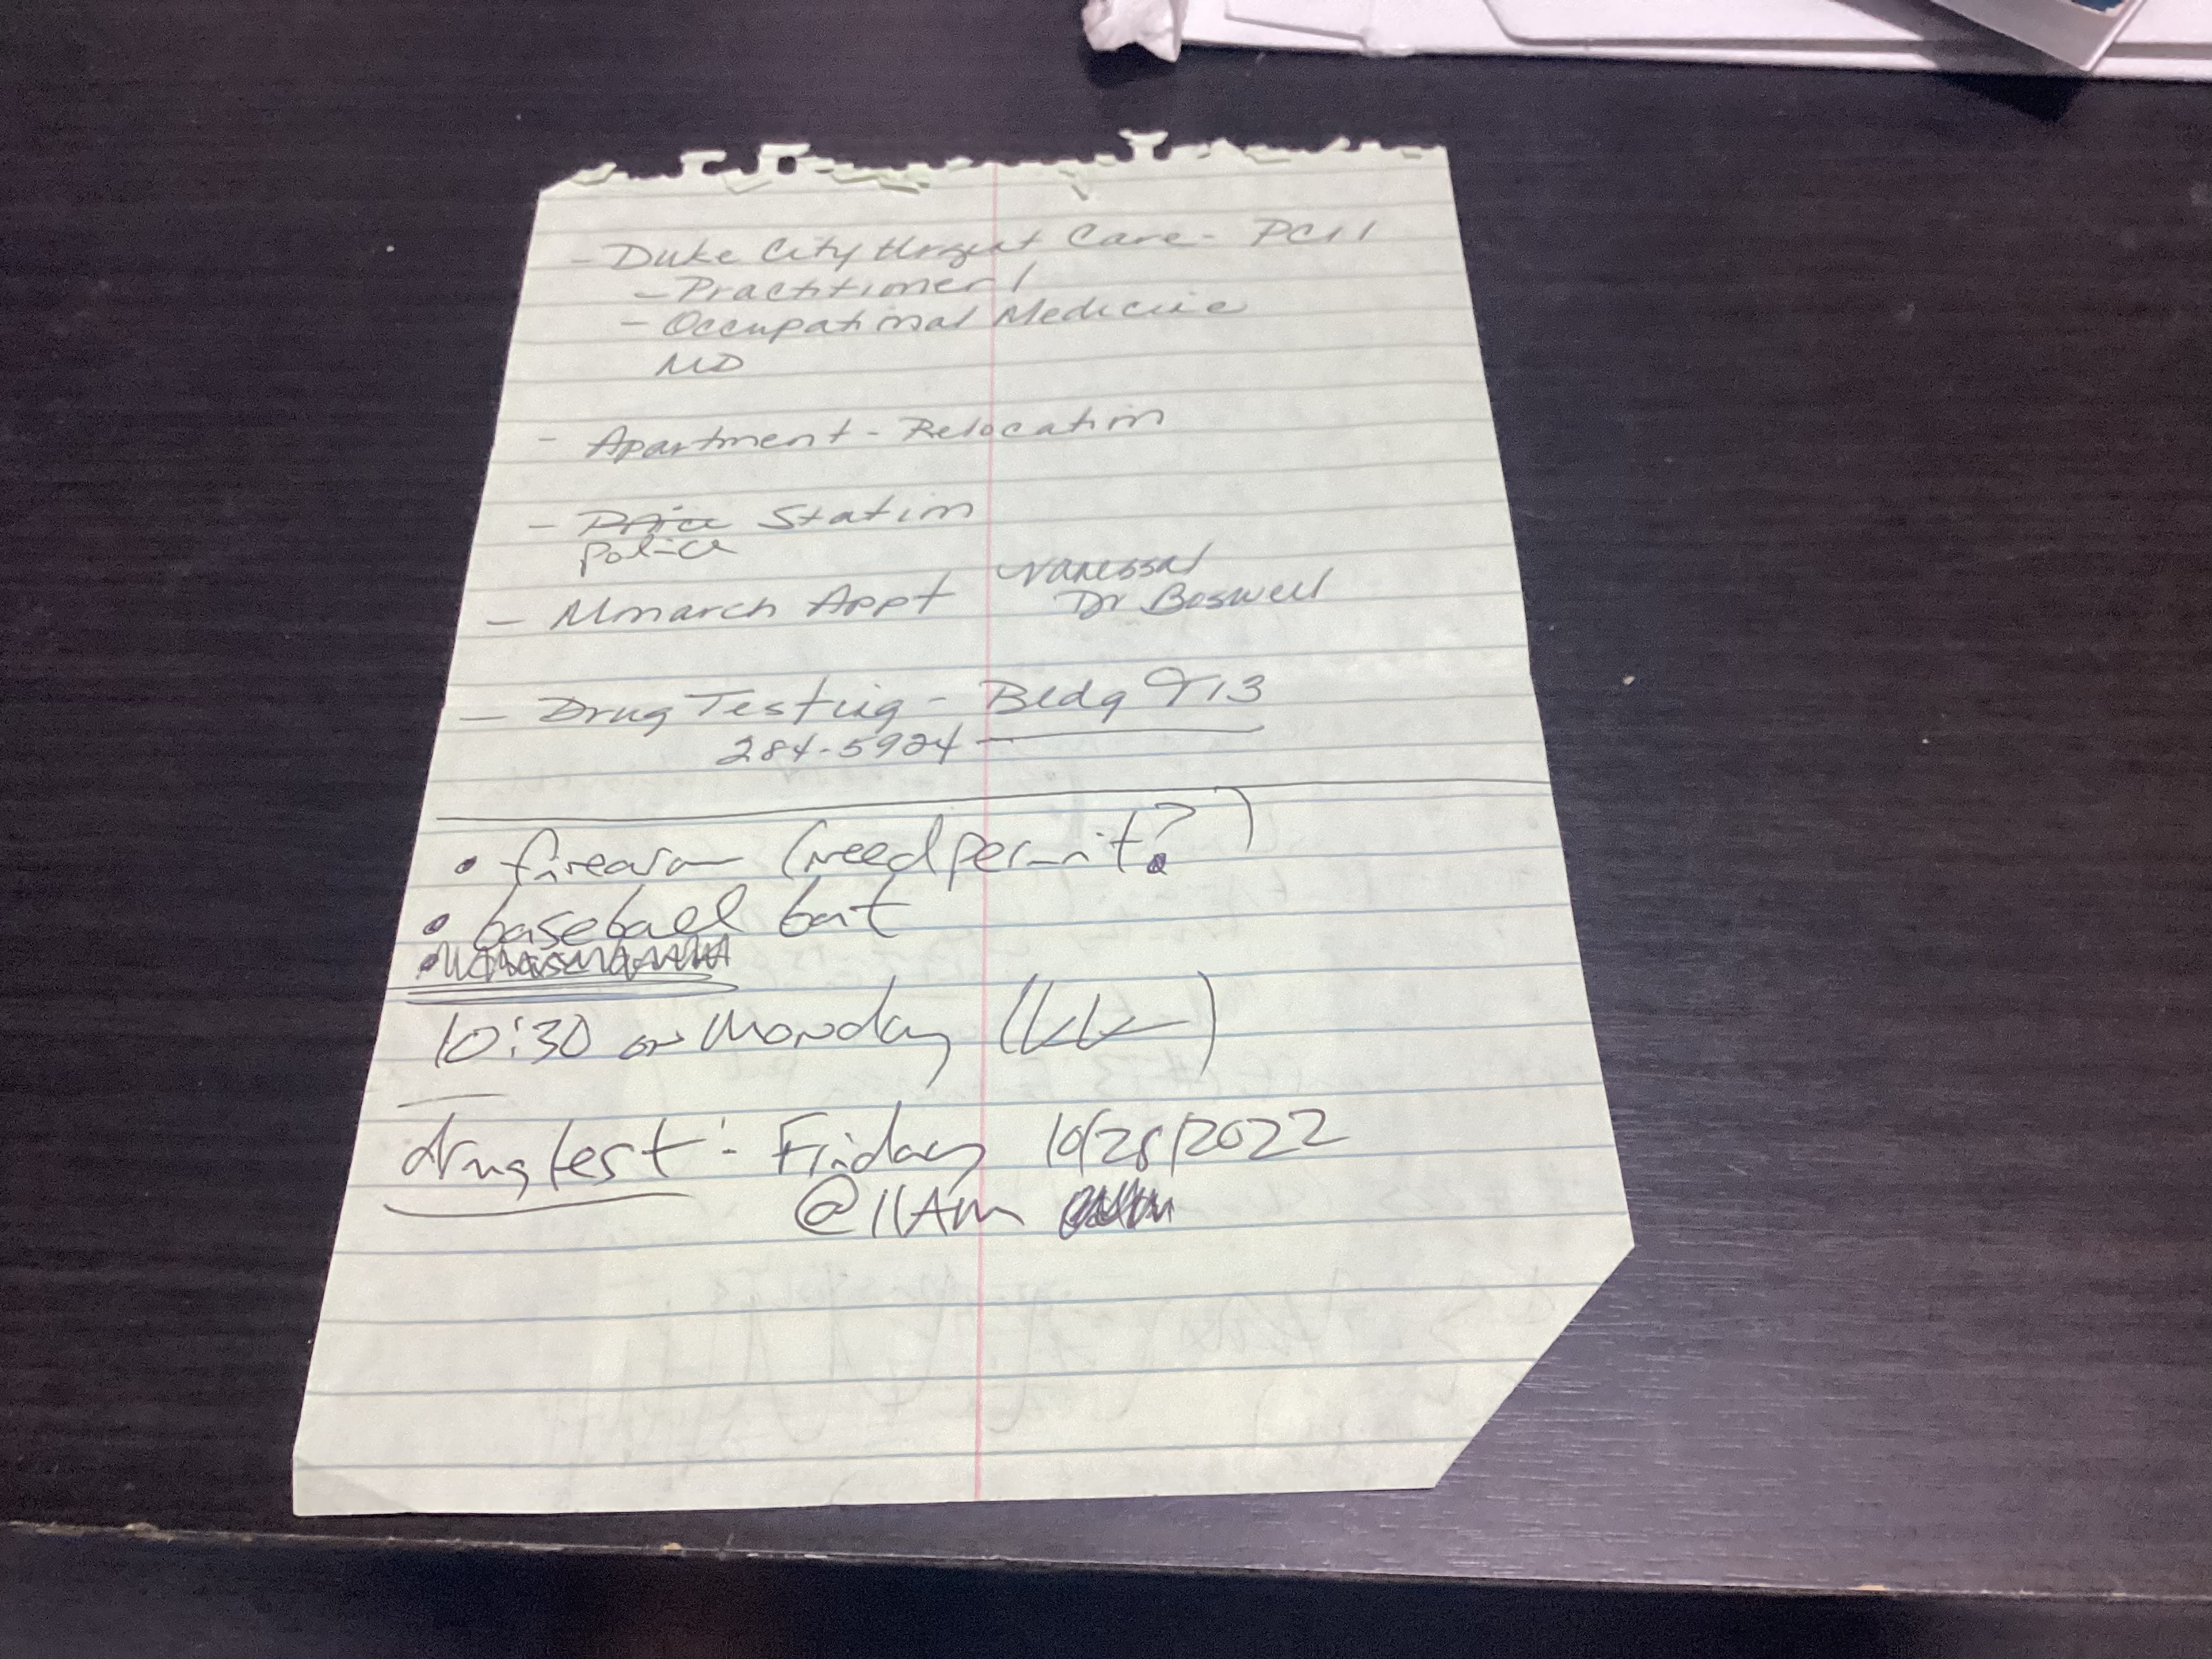 - Duke City Urgent Care -
- Practitioner
- Occupational Medicine
MD
- Apartment - Relocation
- Station
Police
Vanessa
- Monarch Appt Dr Boswell
- Drug Testing - Bldg 913
284-5924
• firearm (need permit?)
• baseball bat
10:30 on Monday
drug test: Friday 10/28/2022
@ 11AM